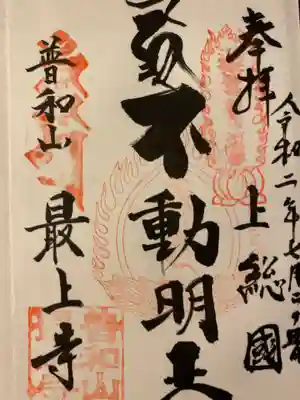 令和二年七月
奉拝 上総國
不動明王
普和山 最上寺
普和山